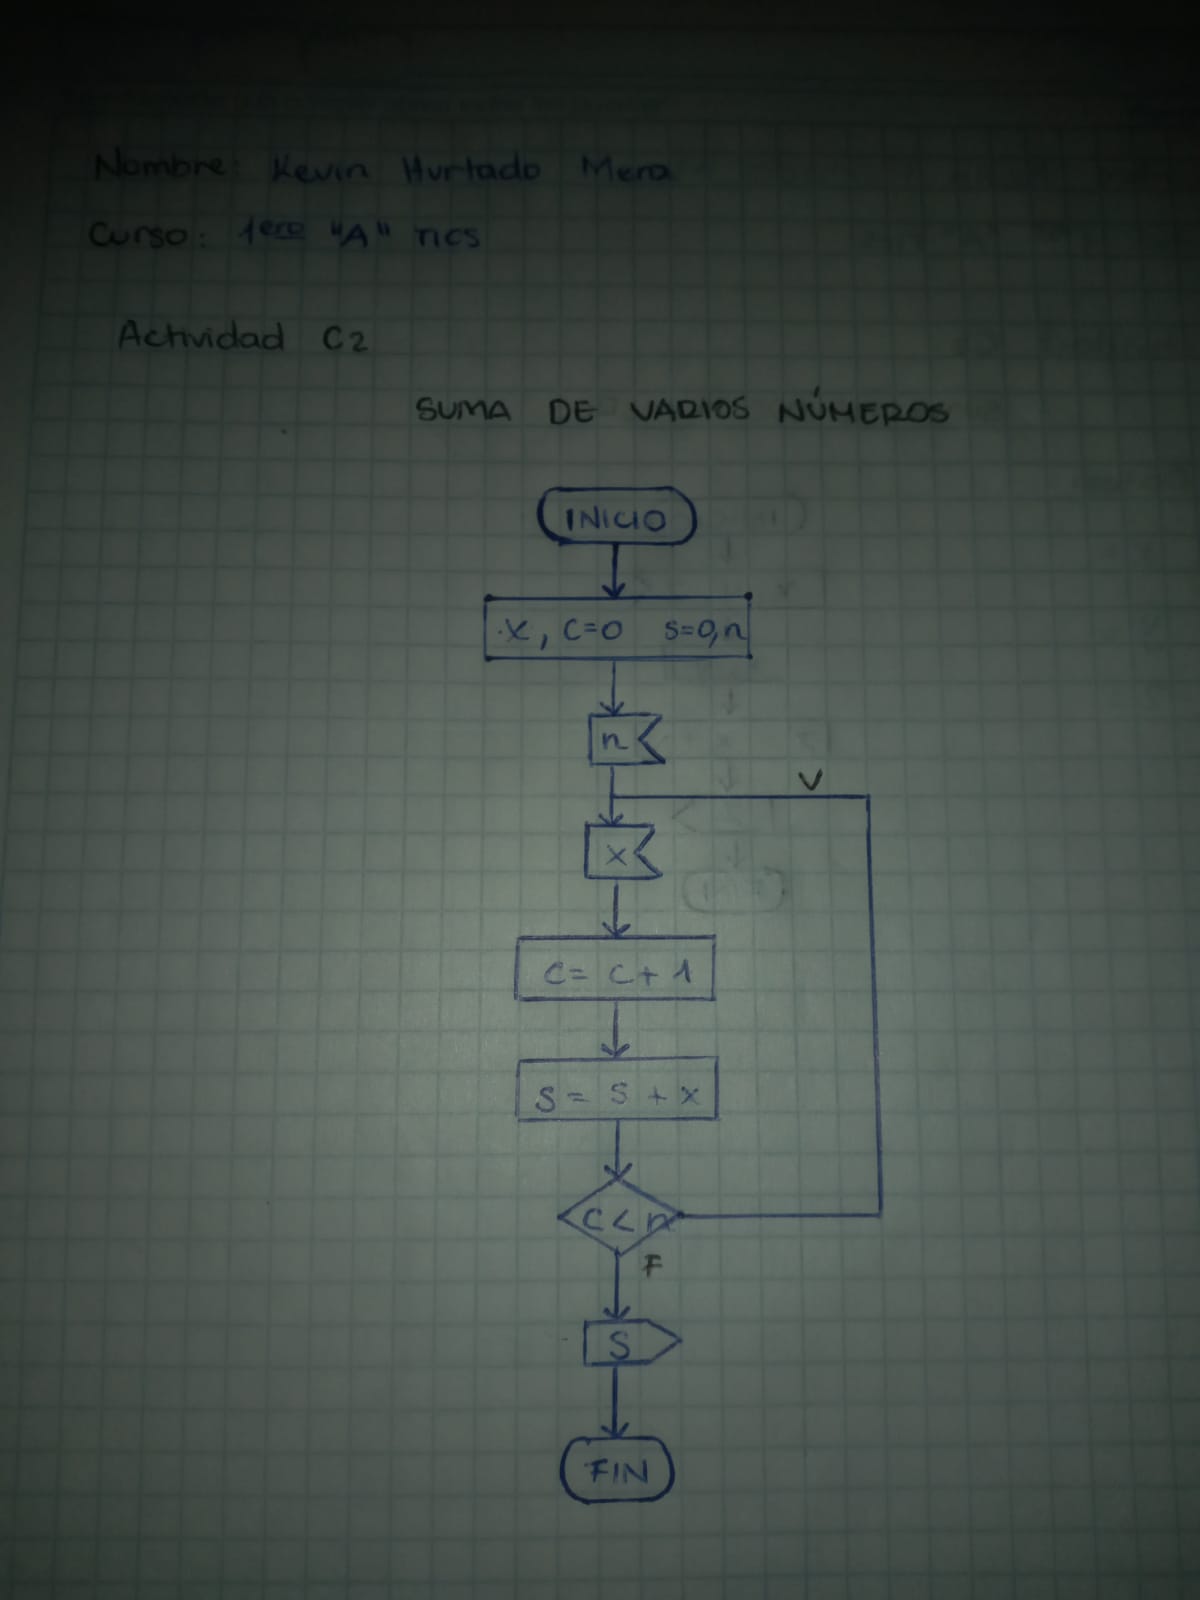 Nombre: Kevin Hurtado Mera
Curso: 1ero "A" TICS
Actividad C2
SUMA DE VARIOS NÚMEROS
INICIO
x, C=0 S=0, n
n
V
x
C= C+1
S= S + x
C < n
F
S
FIN